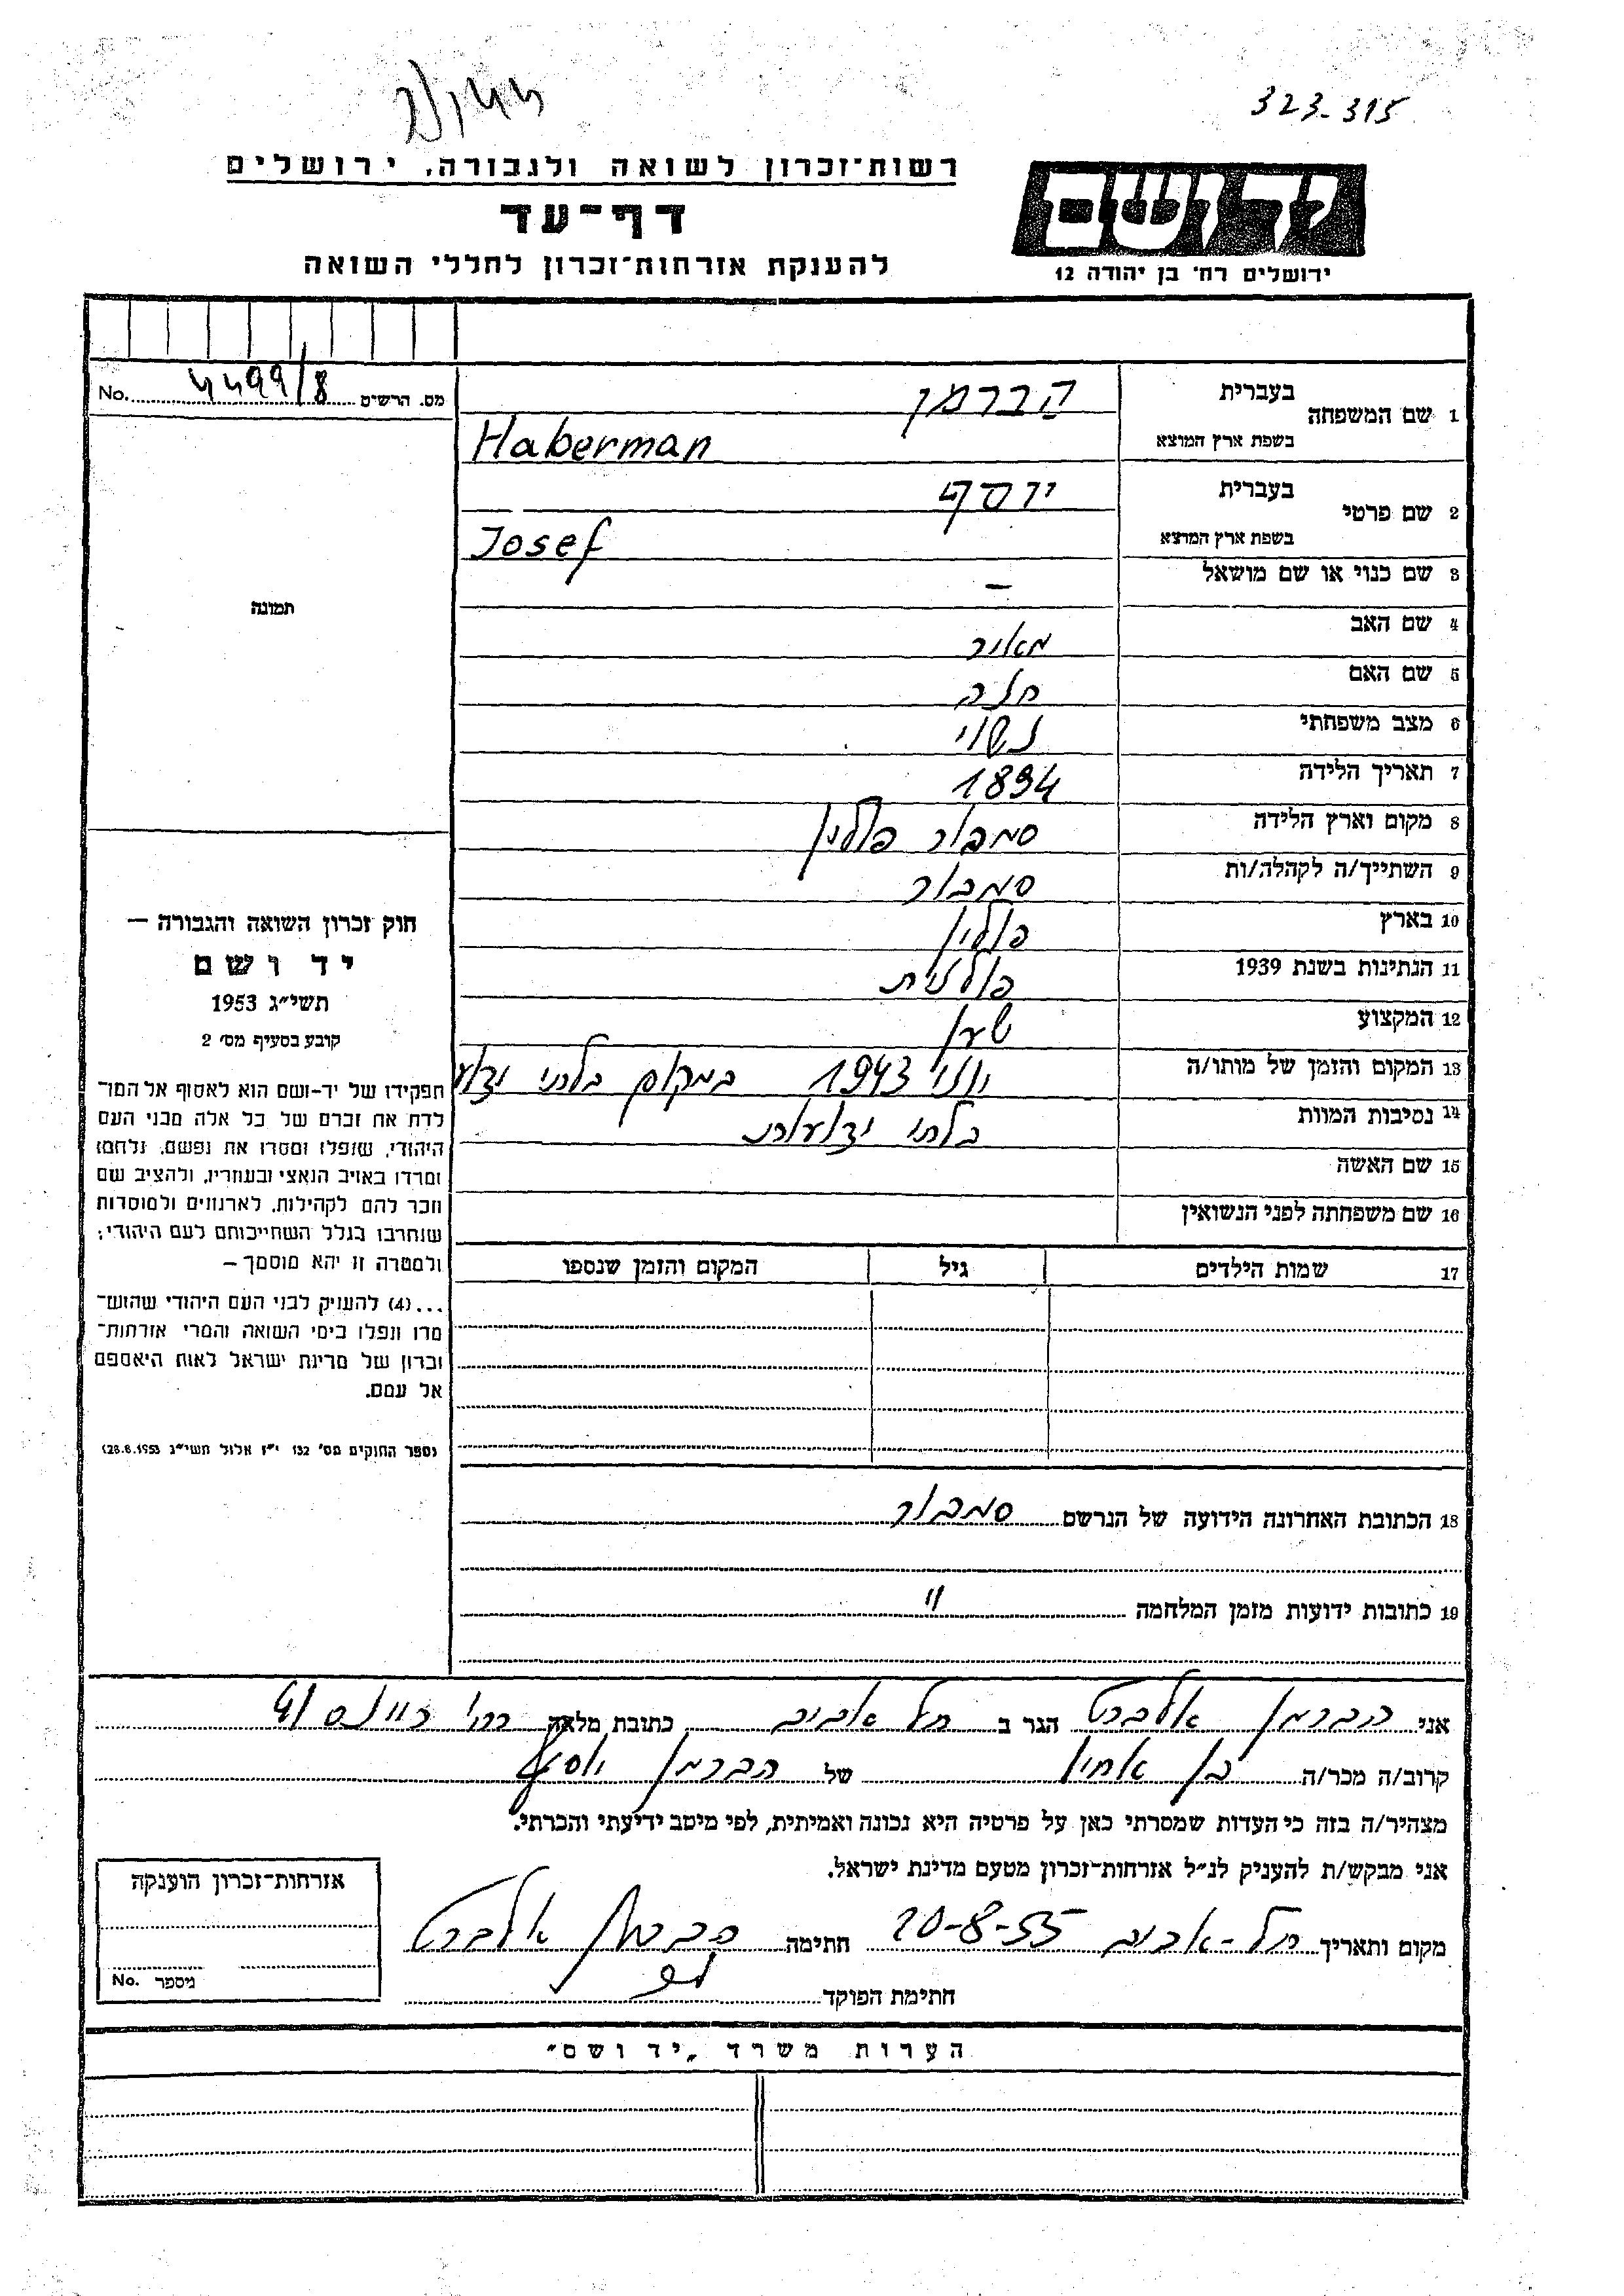 323-315
רשות־זכרון לשואה ולגבורה, ירושלים
יד ושם
דף־עד
להענקת אזרחות־זכרון לחללי השואה
ירושלים רח׳ בן יהודה 12
מס. הרשים No. 4499/8
1 שם המשפחה בעברית הברמן
בשפת ארץ המוצא Haberman
2 שם פרטי בעברית יוסף
בשפת ארץ המוצא Josef
3 שם כנוי או שם מושאל –
4 שם האב מאיר
5 שם האם חוה
6 מצב משפחתי נשוי
7 תאריך הלידה 1894
8 מקום וארץ הלידה סמבור פולין
9 השתייך/ה לקהלה/ות סמבור
10 בארץ פולין
11 הנתינות בשנת 1939 פולנית
12 המקצוע שען
13 המקום והזמן של מותו/ה יוני 1943 במקום בלתי ידוע
14 נסיבות המוות בלתי ידועות
15 שם האשה
16 שם משפחתה לפני הנשואין
17 שמות הילדים גיל המקום והזמן שנספו
18 הכתובת האחרונה הידועה של הנרשם סמבור
19 כתובות ידועות מזמן המלחמה "
תמונה
חוק זכרון השואה והגבורה –
יד ושם
תשי״ג 1953
קובע בסעיף מס׳ 2
תפקידו של יד-ושם הוא לאסוף אל המו־
לדת את זכרם של כל אלה מבני העם
היהודי, שנפלו ומסרו את נפשם, נלחמו
ומרדו באויב הנאצי ובעוזריו, ולהציב שם
וזכר להם לקהילות, לארגונים ולמוסדות
שנחרבו בגלל השתייכותם לעם היהודי;
ולמטרה זו יהא מוסמך –
...(4) להעניק לבני העם היהודי שהוש־
מדו ונפלו בימי השואה והמרי אזרחות־
זכרון של מדינת ישראל לאות היאספם
אל עמם.
(ספר החוקים מס׳ 132 י״ז אלול תשי״ג 28.8.1953)
אני הברמן אלברט הגר ב תל אביב כתובת מלאה רח׳
קרוב/ה מכר/ה בן אחין של הברמן יוסף
מצהיר/ה בזה כי העדות שמסרתי כאן על פרטיה היא נכונה ואמיתית, לפי מיטב ידיעתי והכרתי.
אני מבקש/ת להעניק לנ״ל אזרחות־זכרון מטעם מדינת ישראל.
מקום ותאריך תל-אביב 20-8-55 חתימה הברמן אלברט
חתימת הפוקד
אזרחות־זכרון הוענקה
מיספר No.
הערות משרד „יד ושם״